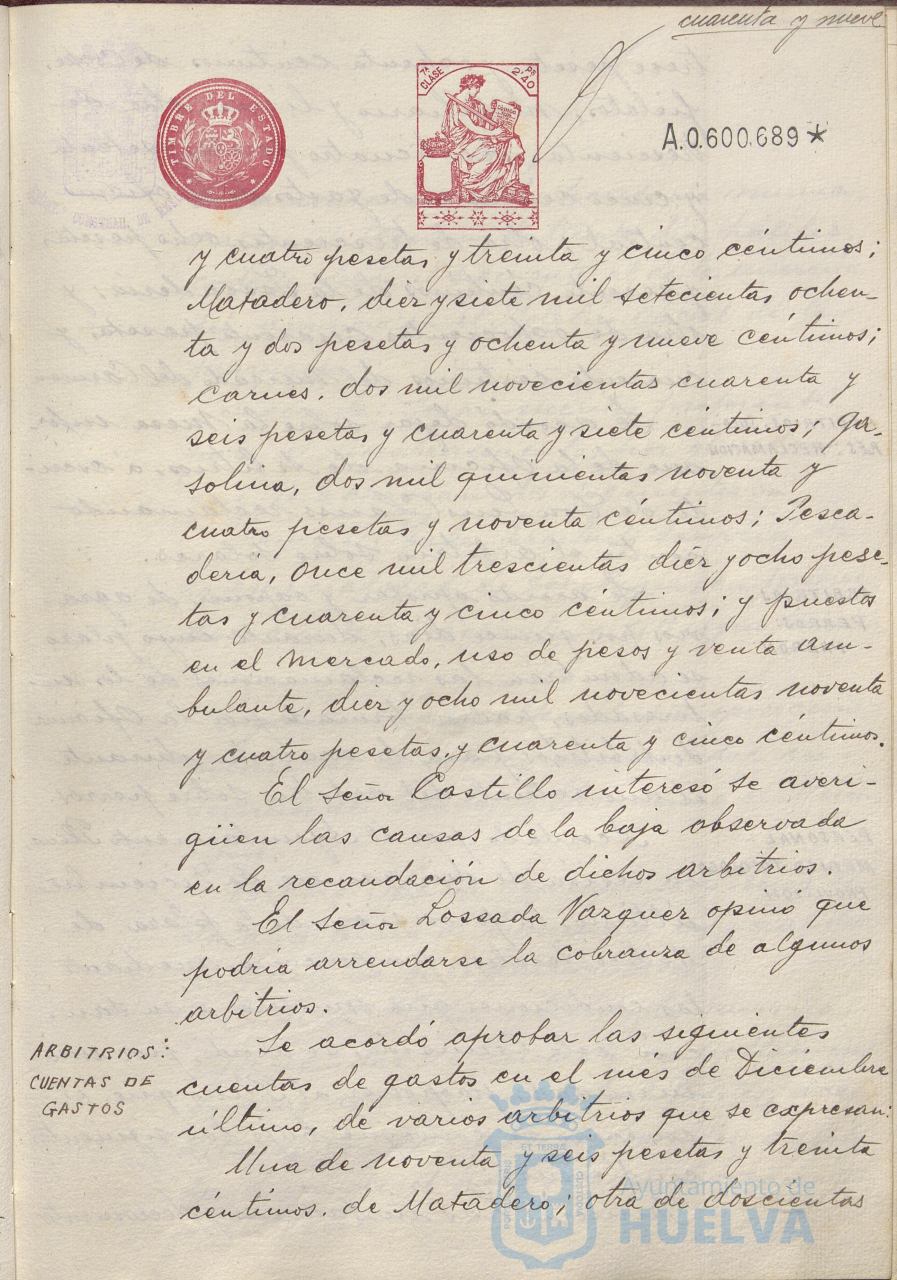 cuarenta y nueve
TIMBRE DEL ESTADO
7ª CLASE
Ps 2'40
A.0.600.689*
y cuatro pesetas y treinta y cinco céntimos;
Matadero, diez y siete mil setecientas ochen-
ta y dos pesetas y ochenta y nueve céntimos;
carnes, dos mil novecientas cuarenta y
seis pesetas y cuarenta y siete céntimos; ga-
solina, dos mil quinientas noventa y
cuatro pesetas y noventa céntimos; Pesca-
dería, once mil trescientas diez y ocho pese-
tas y cuarenta y cinco céntimos; y puestos
en el Mercado, uso de pesos y venta am-
bulante, diez y ocho mil novecientas noventa
y cuatro pesetas, y cuarenta y cinco céntimos.
El Señor Castillo interesó se averi-
güen las causas de la baja observada
en la recaudación de dichos arbitrios.
El Señor Lossada Vazquez opinó que
podría arrendarse la cobranza de algunos
arbitrios.
ARBITRIOS:
CUENTAS DE
GASTOS
Se acordó aprobar las siguientes
cuentas de gastos en el més de Diciembre
último, de varios arbitrios que se expresan:
Una de noventa y seis pesetas y treinta
céntimos, de Matadero; otra de doscientas
Ayuntamiento de
HUELVA